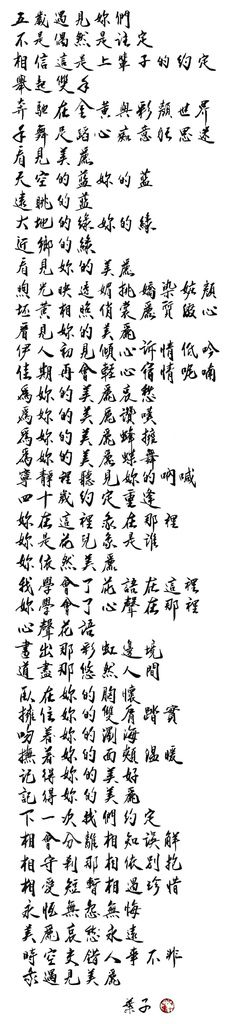 五歲遇見妳們
不是偶然是註定
相信這是上輩子的約定
舉起雙手
奔馳在金黃與彩顏世界
手舞足蹈心意思
看見美麗
天空的藍妳的藍
遠眺的藍
大地的綠妳的綠
近鄉的綠
看見妳的美麗
煦光映照挑染顏
黃相俏心
看見妳的美麗
伊人初見傾心訴情低吟
佳期再會輕心情呢喃
為妳的美麗哀愁
為妳的美麗讚嘆
為妳的美麗蜂擁
為妳的美麗蝶舞
寧靜裡聽見妳的吶喊
四十歲約定重逢
妳在這裡我在那裡
妳是花兒我是誰
妳依然美麗
我學會了花語在這裡
妳學會了心聲在那裡
心聲花語
畫出彩虹邊境
道盡那悠然人間
臥在妳的胸懷
擁住妳的雙肩踏實
吻著妳的淚海
撫著妳的面頰溫暖
記得妳的美好
記得妳的美麗
下一次我們約定
相會分離相知誤解
相守判那相依別抱
相愛短暫相過珍惜
永恆無怨無悔
美麗哀愁永遠
時空交錯人事不昨
我遇見美麗
葉子